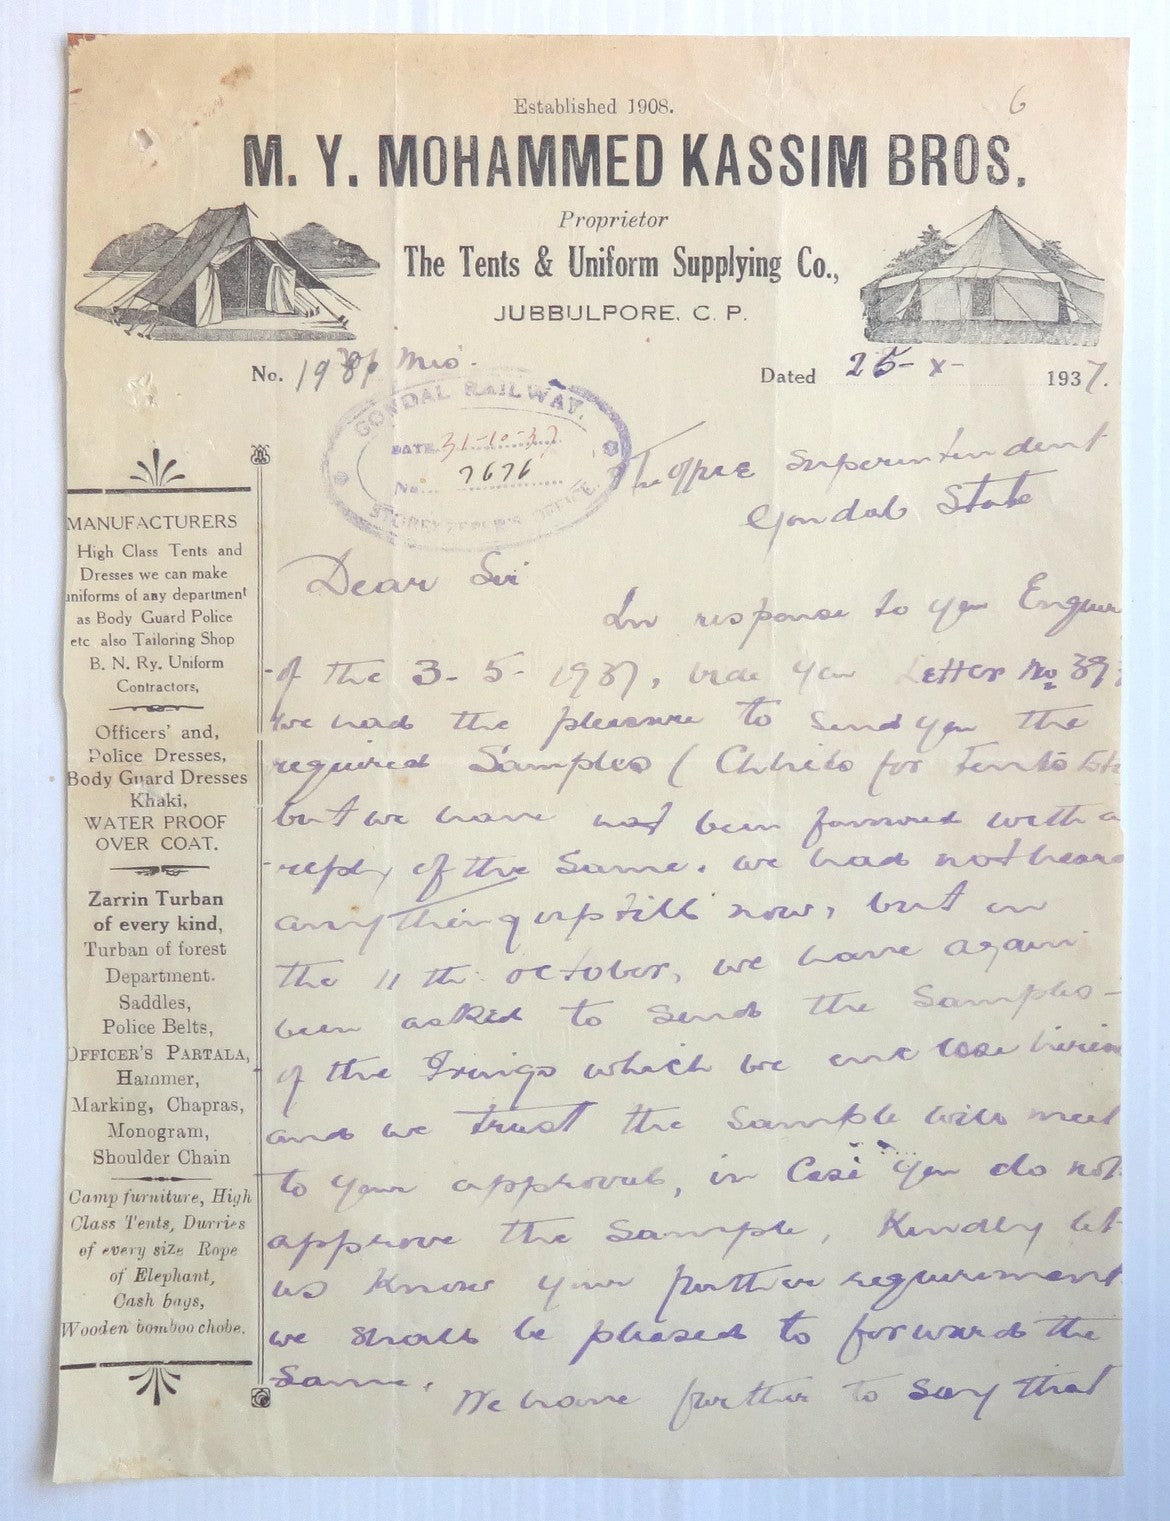 Established 1908.
6
M. Y. MOHAMMED KASSIM BROS.
Proprietor
The Tents & Uniform Supplying Co.,
JUBBULPORE. C. P.
No.
Dated 25-x- 1937.
GONDAL RAILWAY.
DATE. 31-10-37
No. 7676
STOREKEEPER'S OFFICE.
Superintendent
Gondal State
MANUFACTURERS
High Class Tents and
Dresses we can make
uniforms of any department
as Body Guard Police
etc also Tailoring Shop
B. N. Ry. Uniform
Contractors,
Officers' and,
Police Dresses,
Body Guard Dresses
Khaki,
WATER PROOF
OVER COAT.
Zarrin Turban
of every kind,
Turban of forest
Department.
Saddles,
Police Belts,
OFFICER'S PARTALA,
Hammer,
Marking, Chapras,
Monogram,
Shoulder Chain
Camp furniture, High
Class Tents, Durries
of every size Rope
of Elephant,
Cash bags,
Wooden bomboo chobe.
Dear Sir
In response to your
of the 3-5-1937, vide your Letter No 39
we had the pleasure to send you the
required Samples ( for Tents
but we have not been favoured with a
reply of the same. we had not heard
anything up till now, but on
the 11 th. october, we have again
been asked to send the Samples -
of the Frings which we enclose herein
and we trust the Sample will meet
to your approval, in Case you do not
approve the Sample, Kindly let
us Know your further requirement
we shall be pleased to forward the
Same.
We have further to say that